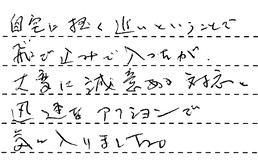 自宅に極く近いということで
飛び込みで入ったが、
大変に誠意ある対応と
迅速なアクションで
気に入りました。